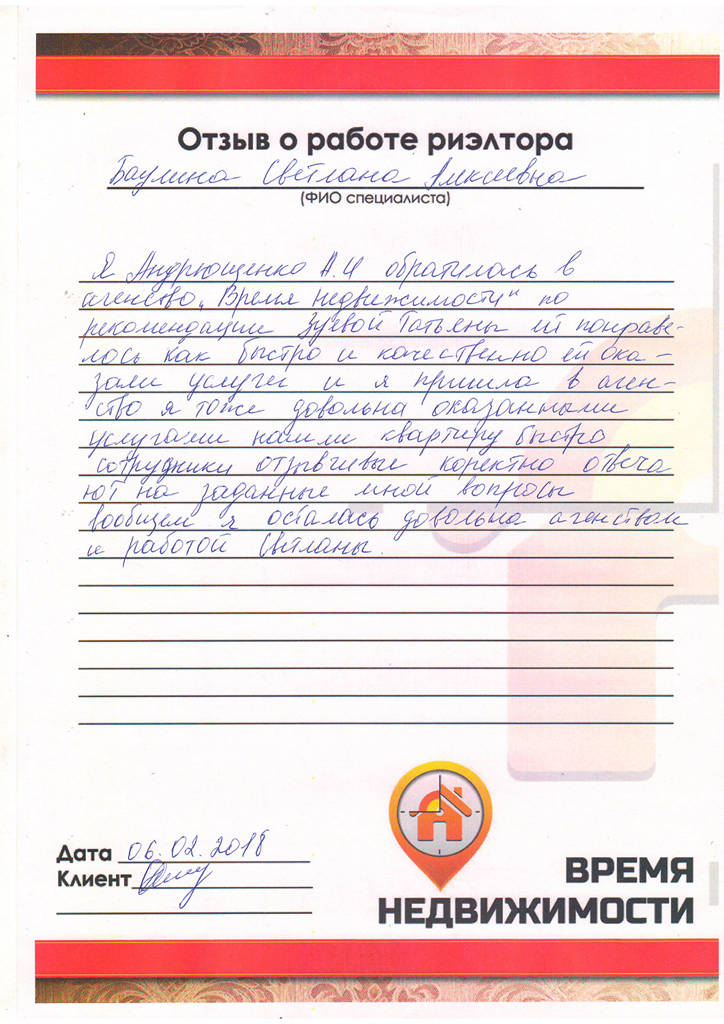 Отзыв о работе риэлтора
Баулина Светлана Алексеевна
(ФИО специалиста)
Я Андрющенко А.И обратилась в
агенсво „Время недвижимости" по
рекомендации Зуевой Татьяны ей понраве-
лось как быстро и качественно ей ока-
зали услугу и я пришла в аген-
ство я тоже довольна оказанными
услугами нашли квартиру быстро
сотрудники отзывчивые коректно отвеча
ют на заданные мной вопросы
вообщем я осталась довольна агенством
и работой Светланы.
Дата 06.02.2018
Клиент
ВРЕМЯ
НЕДВИЖИМОСТИ